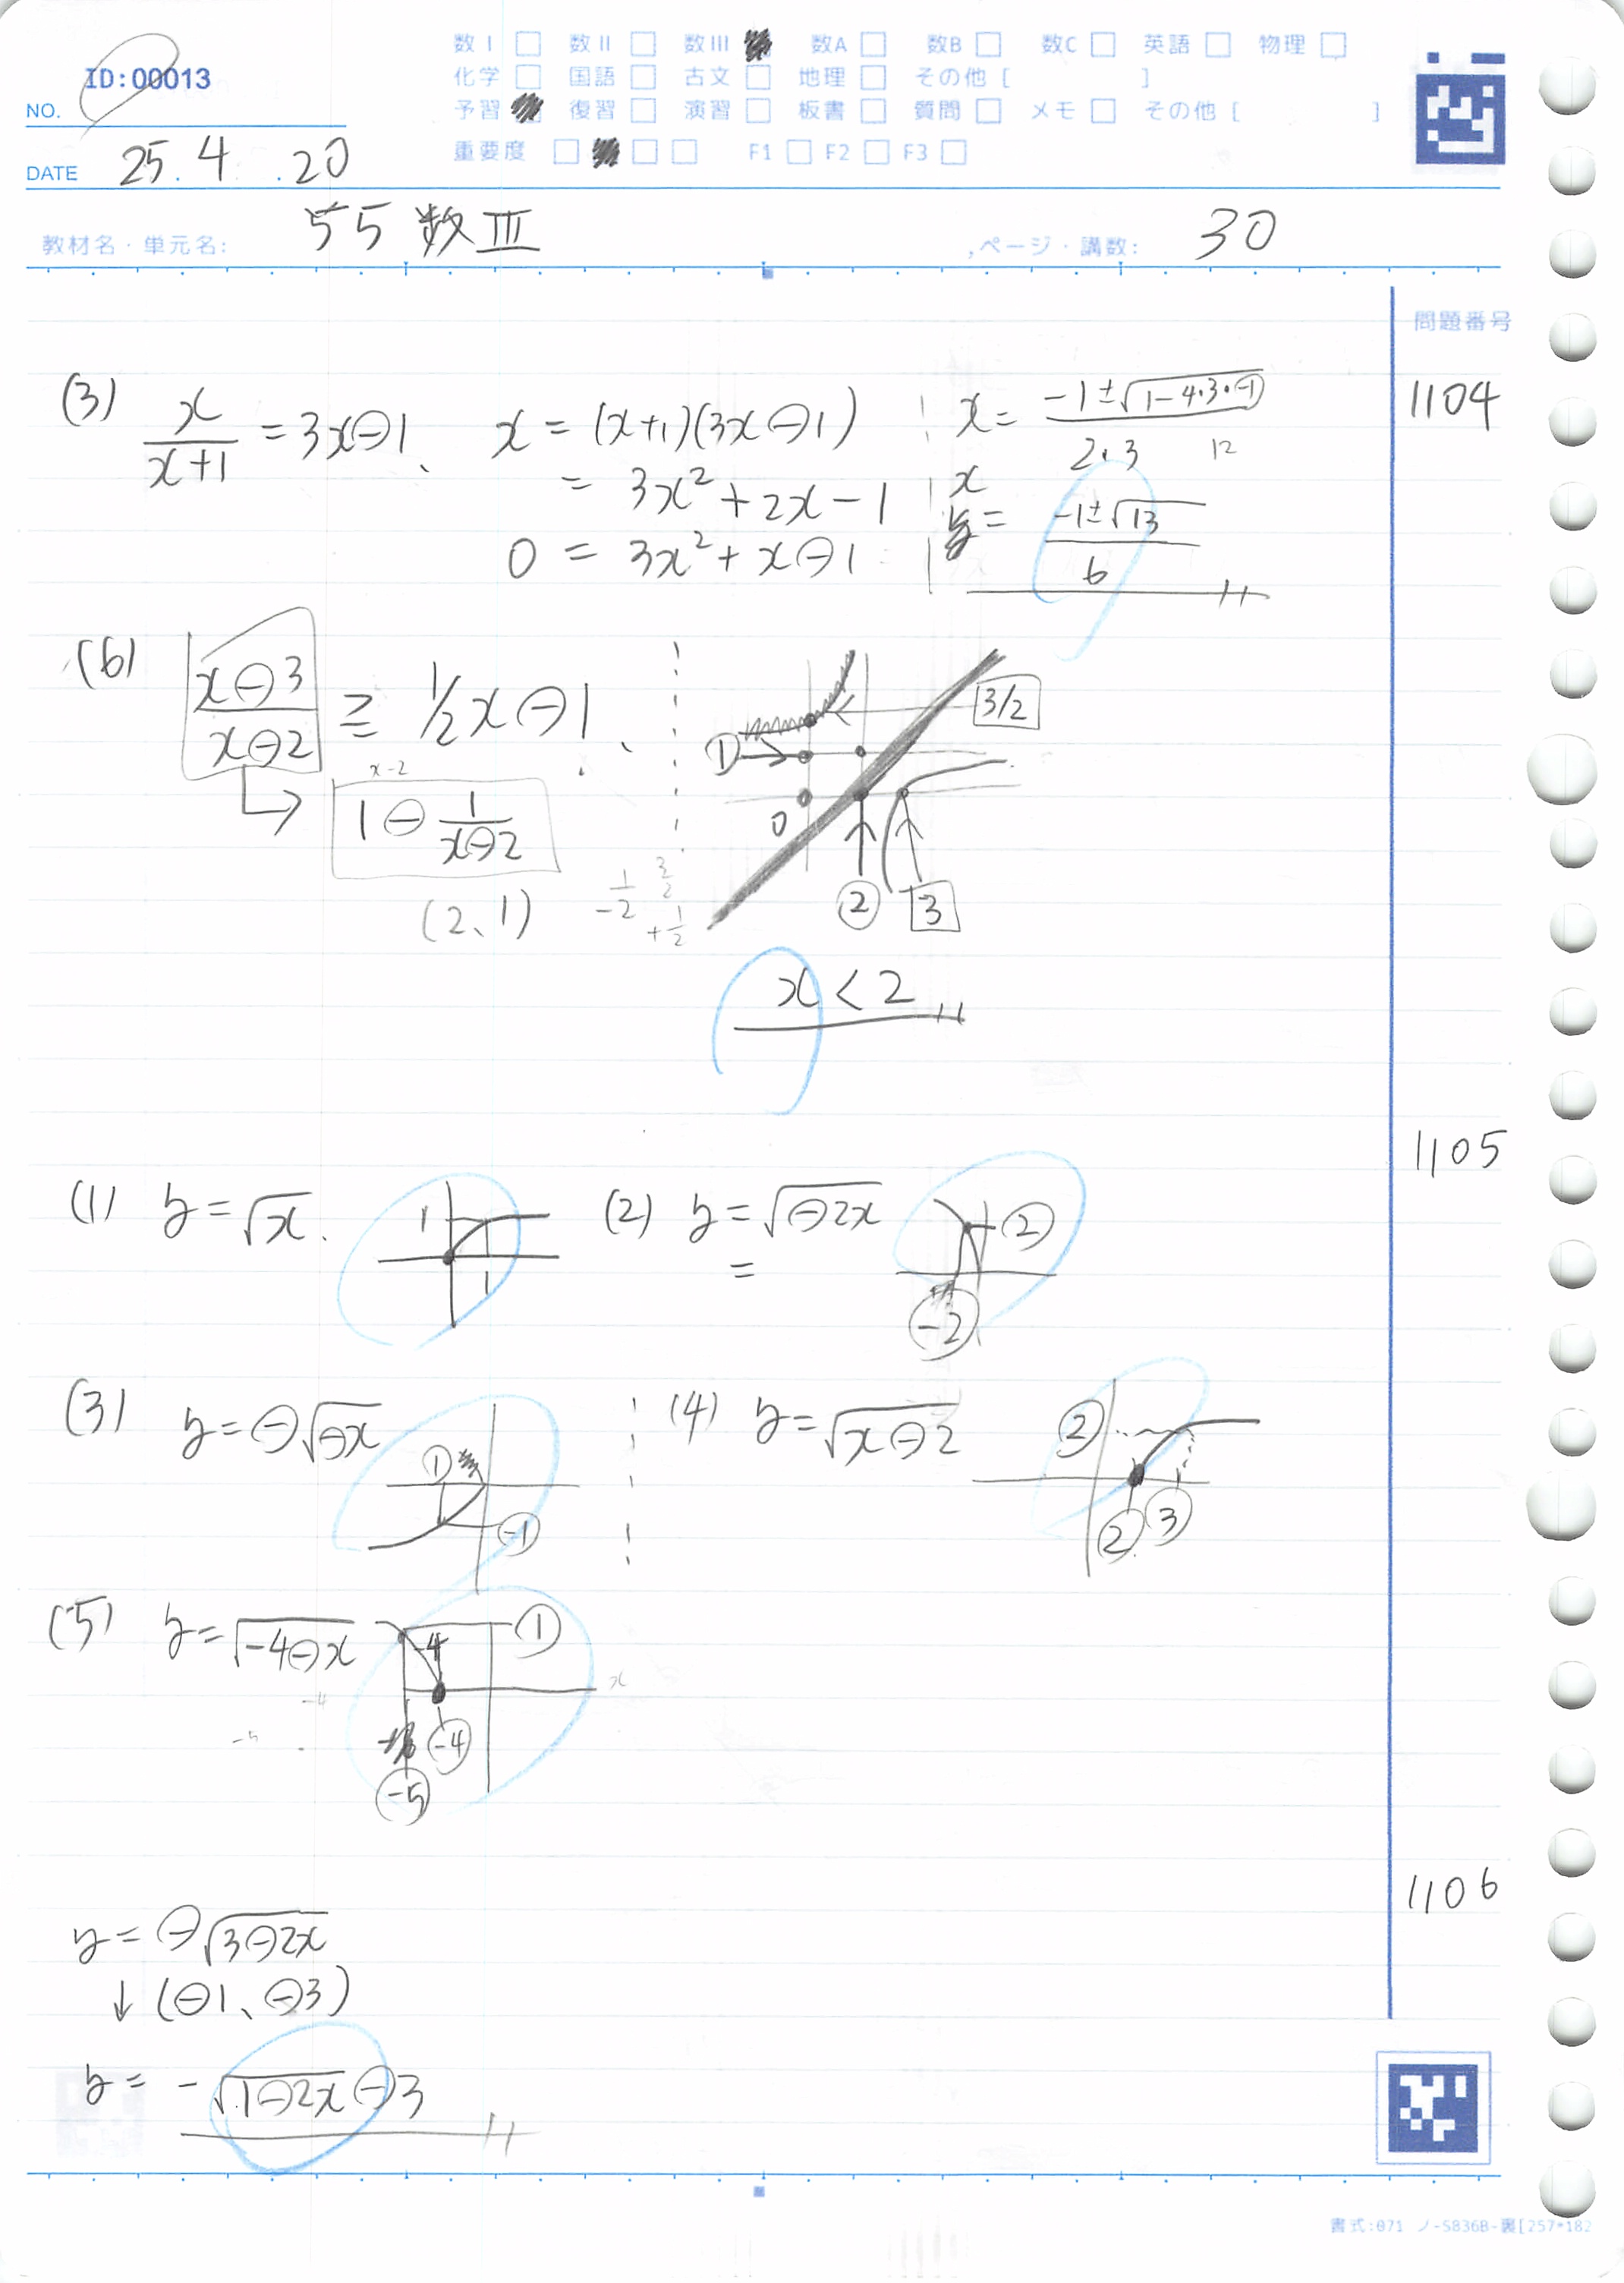 数I □ 数II □ 数III ■ 数A □ 数B □ 数C □ 英語 □ 物理 □
ID:00013
化学 □ 国語 □ 古文 □ 地理 □ その他 [ ]
NO.
予習 ■ 復習 □ 演習 □ 板書 □ 質問 □ メモ □ その他 [ ]
重要度 □ ■ □ □ F1 □ F2 □ F3 □
DATE 25.4.20
教材名・単元名: 55 数III ページ・講数: 30
問題番号
1104
(3) x/(x+1) = 3x⊖1、 x = (x+1)(3x⊖1)
= 3x² + 2x - 1
0 = 3x² + x⊖1
x = (-1±√(1-4・3・-1))/(2・3) 12
x = (-1±√13)/6
(6) (x⊖3)/(x⊖2) ≧ 1/2x⊖1、
x-2
1⊖1/(x⊖2)
(2、1)
3/2
①
0
② 3
1/-2 3/2 +1/2
x < 2
1105
(1) y = √x.
1
1
(2) y = √(⊖2x)
=
②
-2
(3) y = ⊖√(⊖x)
①
-1
(4) y = √(x⊖2)
②
② ③
(5) y = √(-4⊖x)
①
-4
x
-4
-5
-4
-5
1106
y = ⊖√(3⊖2x)
↓ (⊖1、⊖3)
y = -√(1⊖2x)⊖3
書式:071 ノ-S836B-裏[257*182